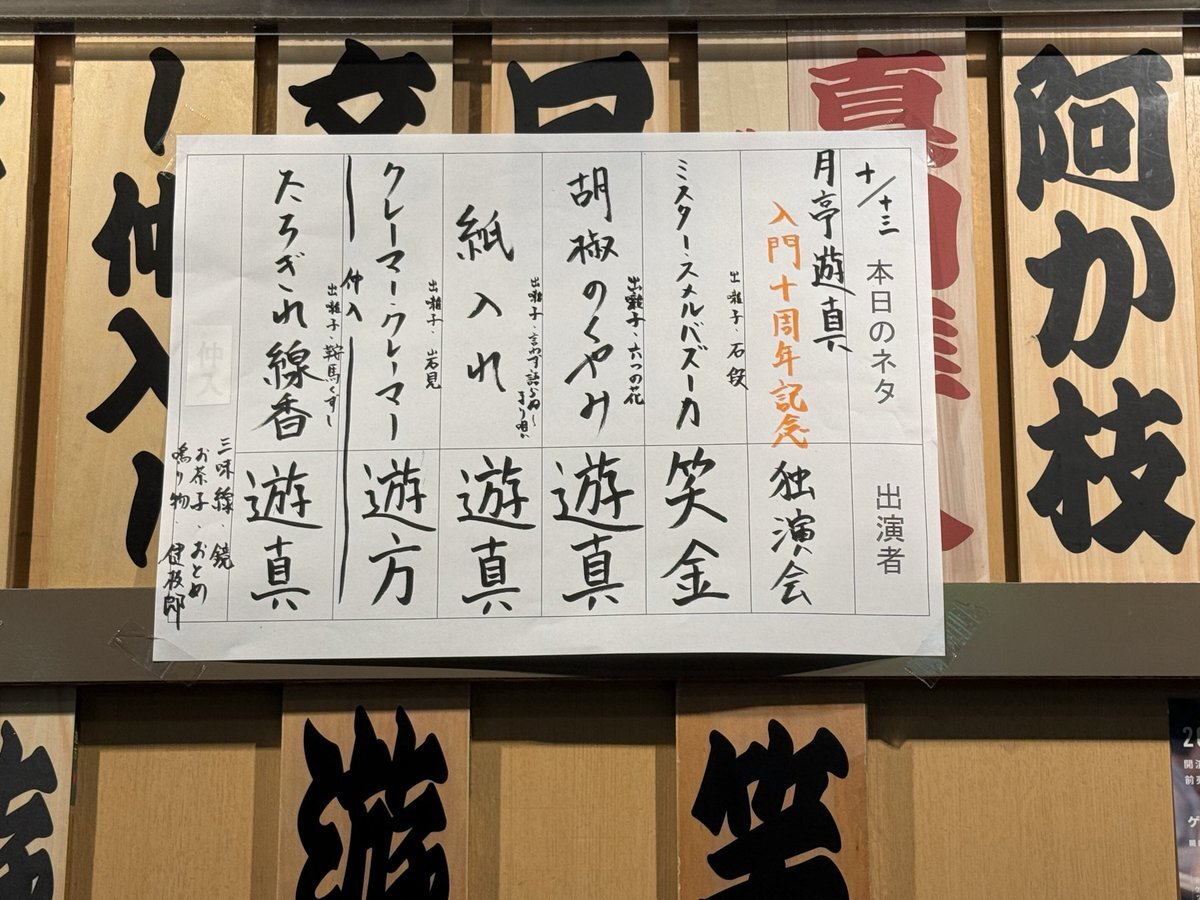 十/十三 本日のネタ 出演者
月亭遊真
入門十周年記念 独演会
出囃子、石段
ミスター・スメルバズーカ 笑金
出囃子、六つの花
胡椒のくやみ 遊真
紙入れ 遊真
出囃子、岩見
クレーマー・クレーマー 遊方
仲入
出囃子、鞍馬くずし
たちぎれ線香 遊真
仲入
三味線、鏡
お茶子、おとめ
鳴り物、
阿か枝
仲入り
遊
笑